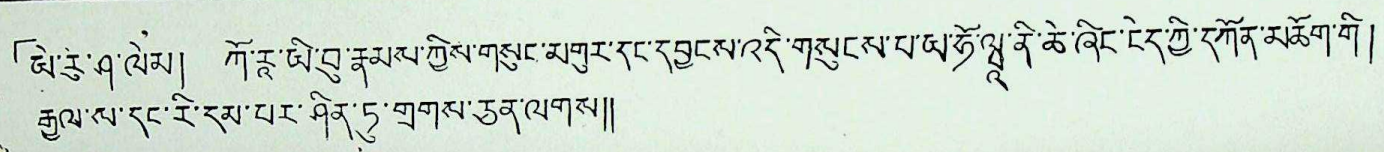 「ཡེ་རུ་ཤ་ལེམ། ཀོ་རཱ་ཡི་བུ་རྣམས་ཀྱིས་གསུང་མགུར་དང་དབྱངས་འདི་གསུངས་པ་ཡ་ཧོ་ཝཱ་ནི་ཆེ་ཞིང་ངེད་ཀྱི་དཀོན་མཆོག་གི།
རྒྱལ་ས་དང་རི་དམ་པར་ཤིན་ཏུ་གྲགས་ཅན་ལགས།།